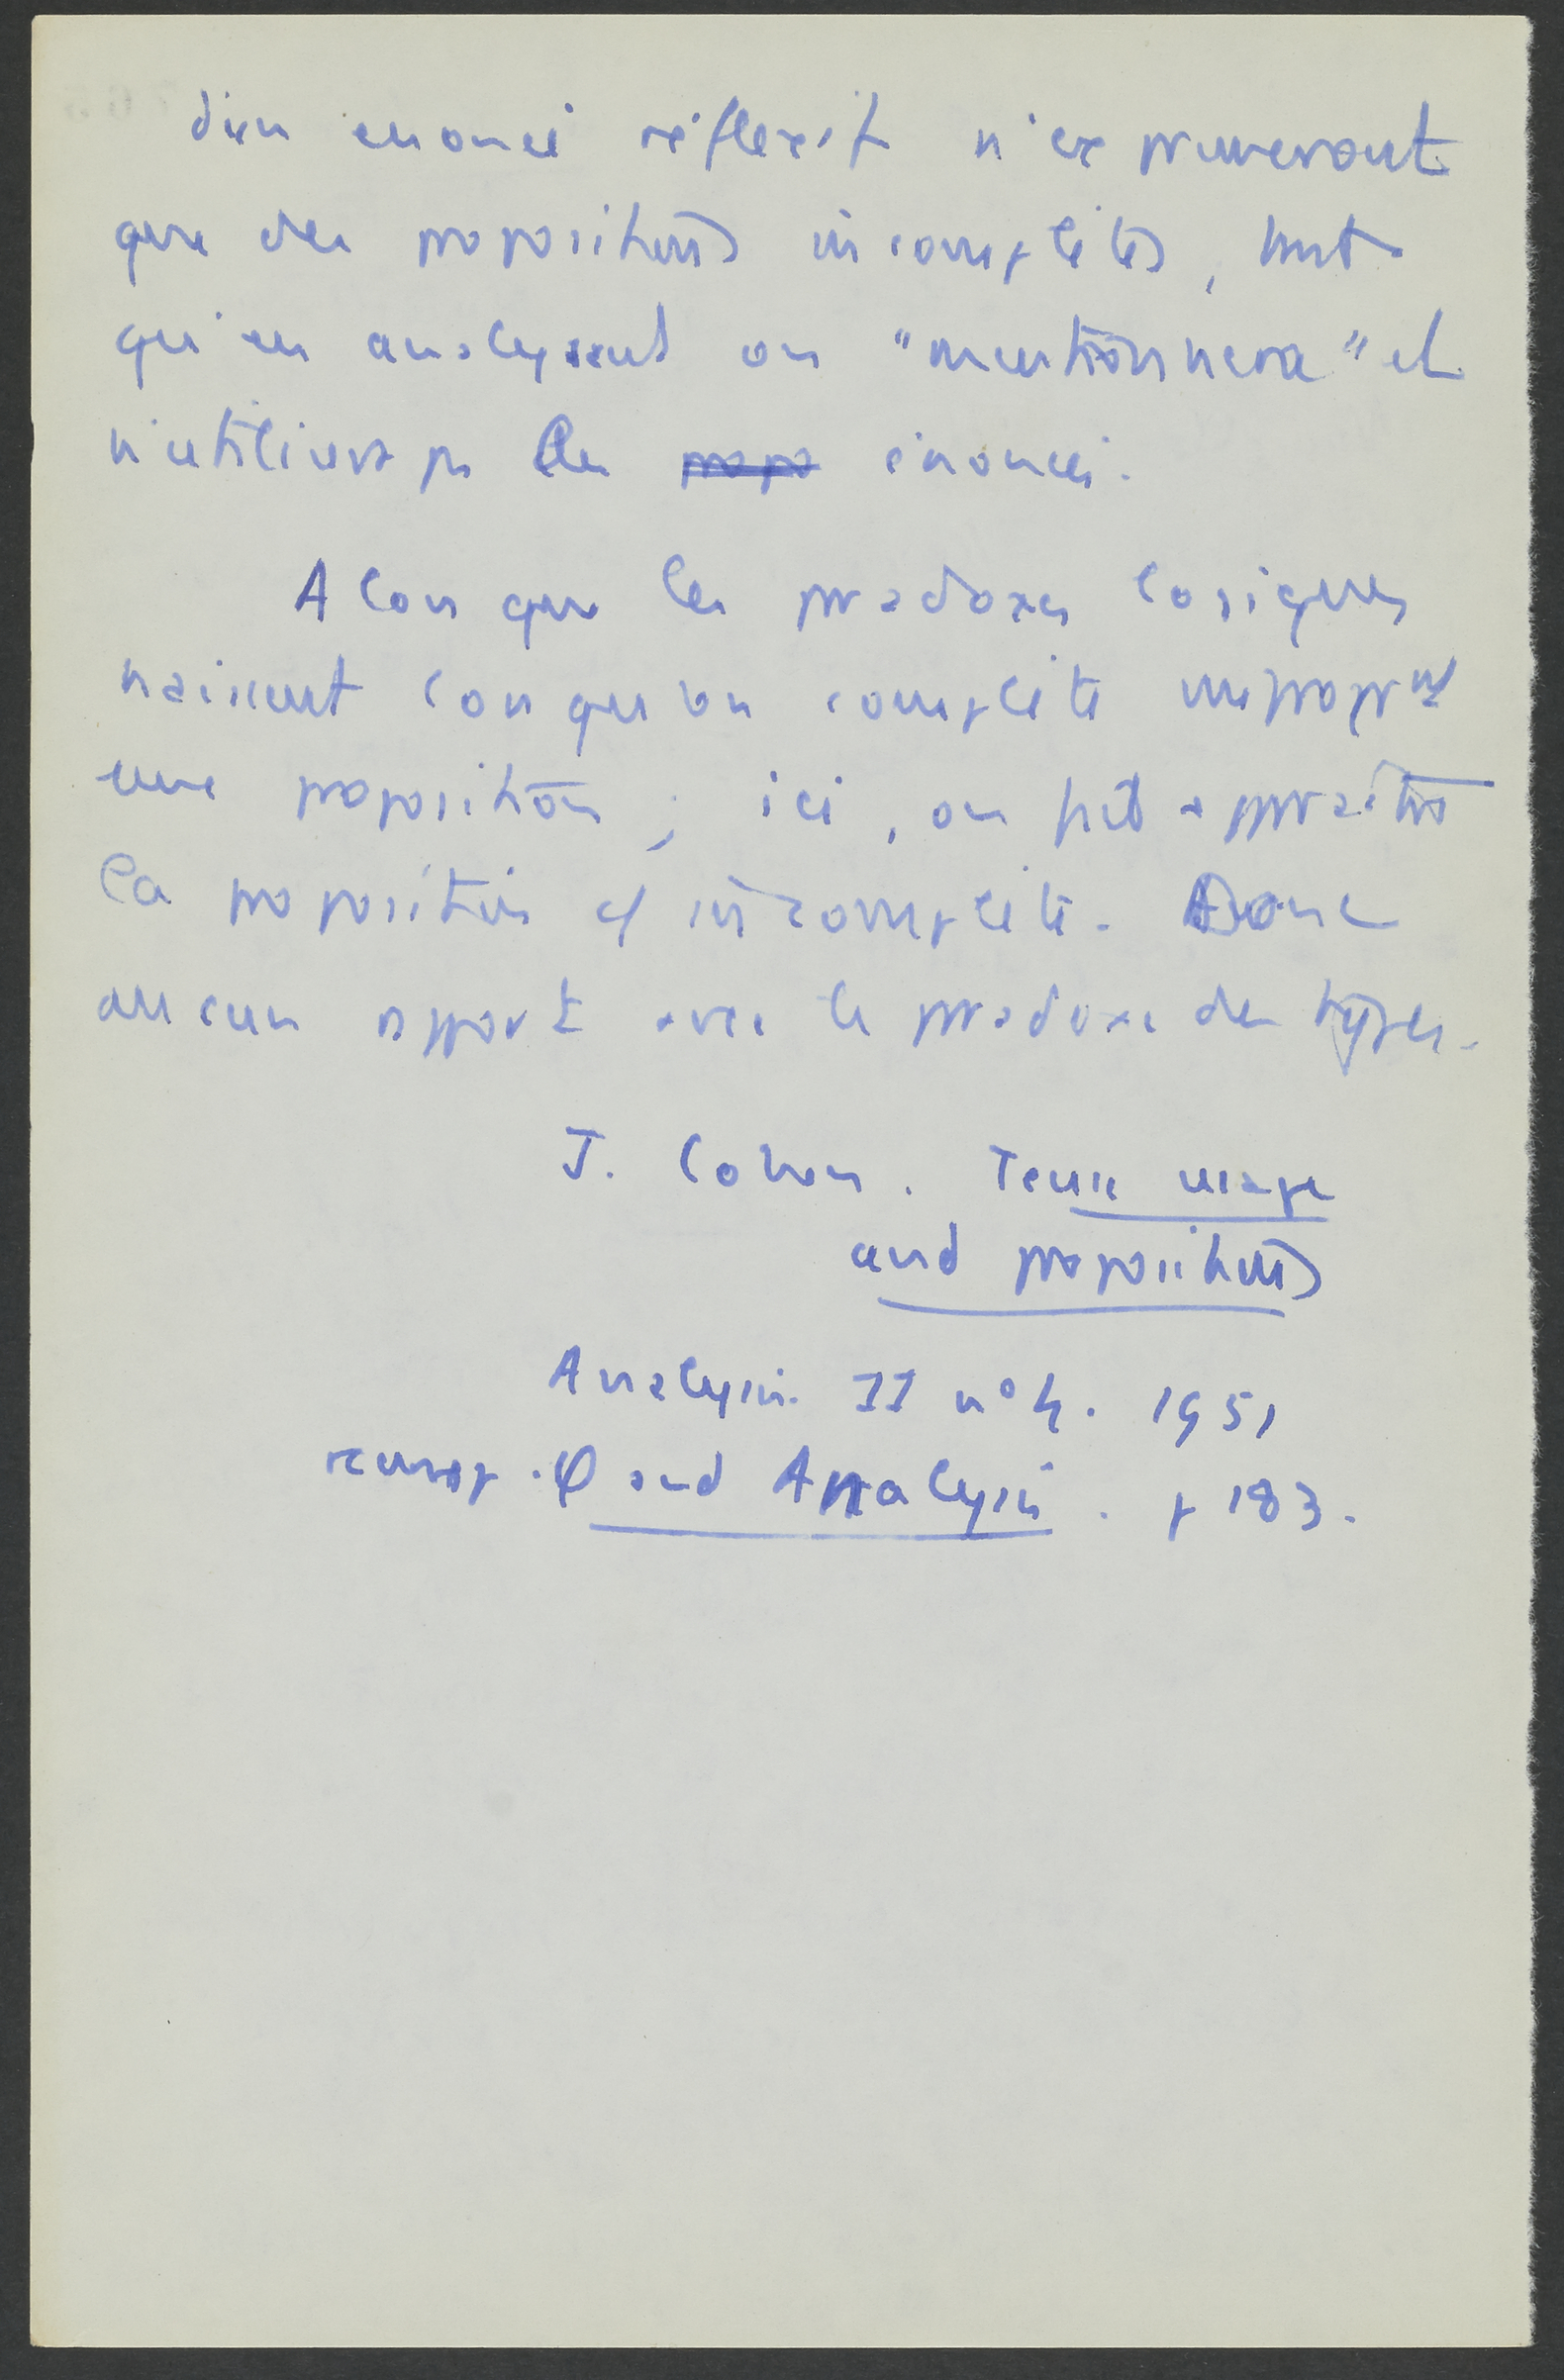 d'un énoncé réflexif n'exprimeront
que des propositions incomplètes, tant
qu'en analysant on "mentionnera" et
n'utilisera pas les propo énoncés.
Alors que les paradoxes logiques
naissent lorsqu'on complète impropr^nt
une proposition ; ici, on fait apparaître
la proposition c/ incomplète. Donc
aucun rapport avec le paradoxe des types.
J. Cohen. Tense usage
and propositions
Analysis. II n° 4. 1951
φ and Analysis. p 183.